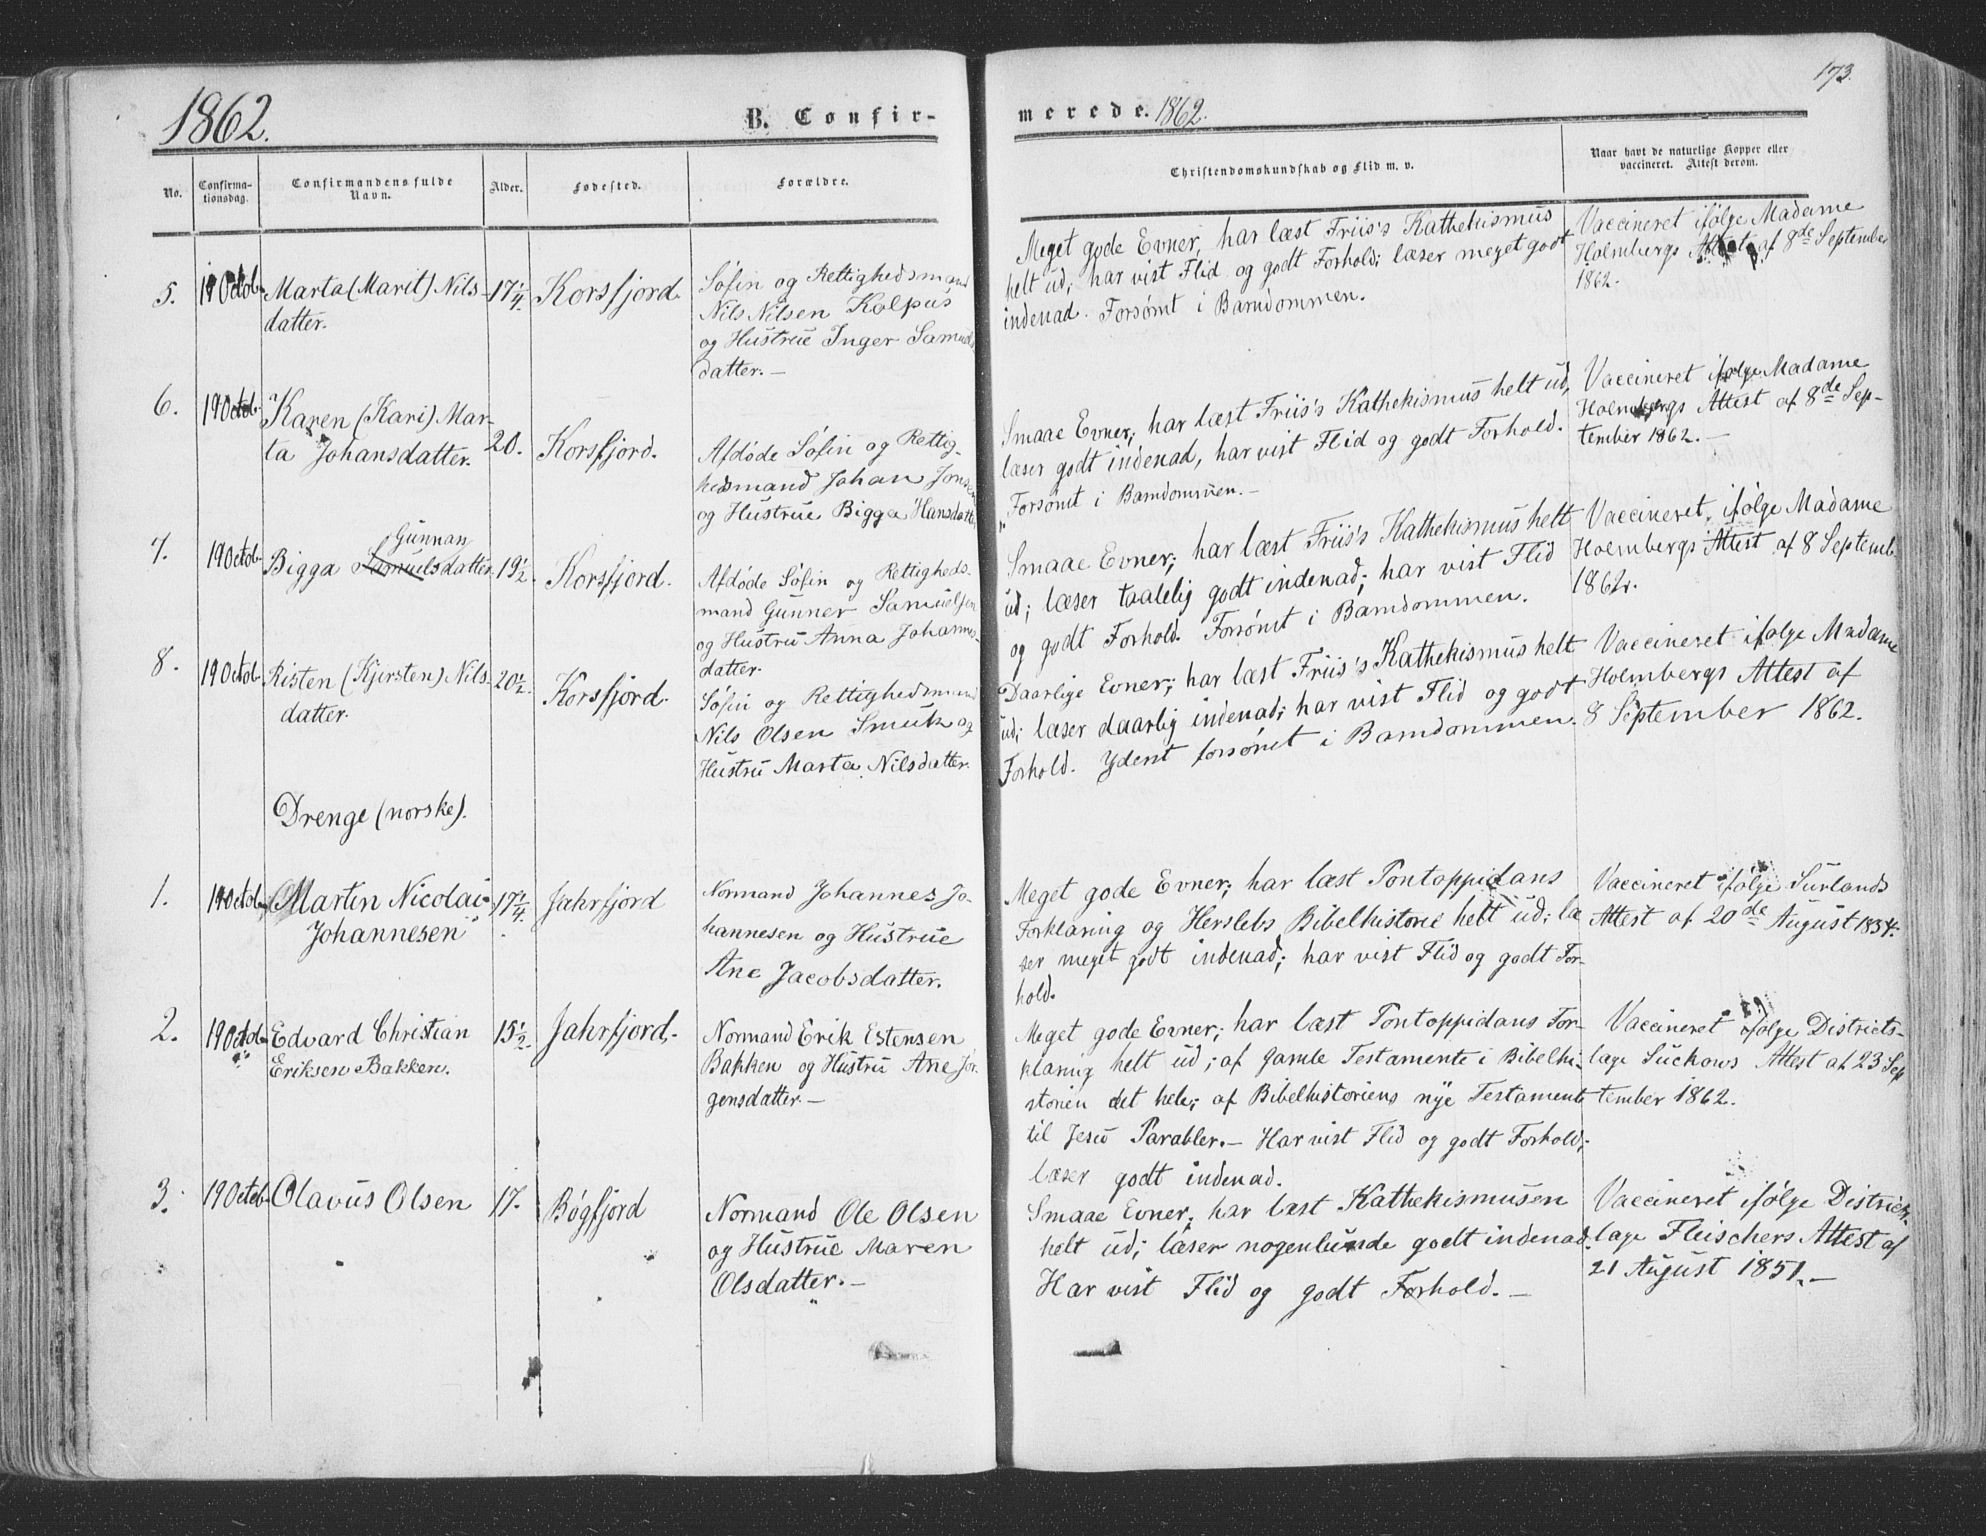 173.
1862.
B. Confir-
merede. 1862.
No.
Confirma-
tionsdag.
Confirmandens fulde
Navn.
Alder.
Fødested.
Forældre.
Christendomskundskab og Flid m. v.
Naar havt de naturlige Kopper eller
vaccineret. Attest derom.
5.
19 Octob.
Marta (Marit) Nils-
datter.
17 1/4
Korsfjord.
Søfin og Rettighedsmand
Nils Nilsen Kolpus
og Hustrue Inger Samuels
datter.—
Meget gode Evner, har læst Friis's Kathekismus
helt ud; har vist Flid og godt Forhold; læser meget godt
indenad. Forsømt i Barndommen.
Vaccineret ifølge Madame
Holmbergs Attest af 8de September
1862.
6.
19 Octob.
Karen (Kari) Mar-
ta Johansdatter.
20.
Korsfjord.
Afdøde Søfin og Rettig-
hedsmand Johan Jonsen
og Hustrue Bigga Hansdatter
Smaae Evner; har læst Friis's Kathekismus helt ud,
læser godt indenad, har vist Flid og godt Forhold.
Forsømt i Barndommen.—
Vaccineret ifølge Madame
Holmbergs Attest af 8de Sep-
tember 1862.—
7.
19 Octob.
Gunnars
Bigga Samuelsdatter.
19 1/2.
Korsfjord.
Afdøde Søfin og Rettigheds-
mand Gunner Samuelsen
og Hustru Anna Johannes-
datter.
Smaae Evner; har læst Friis's Kathekismus helt
ud; læser taalelig godt indenad; har vist Flid
og godt Forhold. Forsømt i Barndommen.
Vaccineret ifølge Madame
Holmbergs Attest af 8 Septemb.
1862.
8.
19 Octob.
Risten (Kjersten) Nils-
datter.
20 1/2.
Korsfjord.
Søfin og Rettighedsmand
Nils Olsen Smuk og
Hustru Marta Nilsdatter.
Daarlige Evner; har læst Friis's Kathekismus helt
ud; læser daarlig indenad; har vist Flid og godt
Forhold. Yderst forsømt i Barndommen.
Vaccineret ifølge Madame
Holmbergs Attest af
8 September 1862.
Drenge (norske).
1.
19 Octob.
Martin Nicolai
Johannesen
17 1/4.
Jahrfjord
Normand Johannes Jo-
hannesen og Hustrue
Ane Jacobsdatter.
Meget gode Evner; har læst Pontoppidans
Forklaring og Herslebs Bibelhistorie helt ud; læ
ser meget godt indenad; har vist Flid og godt For-
hold.
Vaccineret ifølge Surlands
Attest af 20de August 1854.
2.
19 Octob.
Edvard Christian
Eriksen Bakken.
15 1/2.
Jahrfjord.
Normand Erik Estensen
Bakken og Hustru Ane Jør-
gensdatter.—
Meget gode Evner; har læst Pontoppidans For-
klaring helt ud; af gamle Testamente i Bibelhi-
storien det hele; af Bibelhistoriens nye Testamente
til Jesu Parabler.— Har vist Flid og godt Forhold;
læser godt indenad.
Vaccineret ifølge Districts-
læge Suckows Attest af 23 Sep
tember 1862.
3.
19 Octob.
Olavus Olsen
17.
Bøgfjord
Normand Ole Olsen
og Hustrue Maren
Olsdatter.—
Smaae Evner; har læst Kathekismusen
helt ud; læser nogenlunde godt indenad.
Har vist Flid og godt Forhold.—
Vaccineret ifølge Districts-
læge Fleischers Attest af
21 August 1851.—